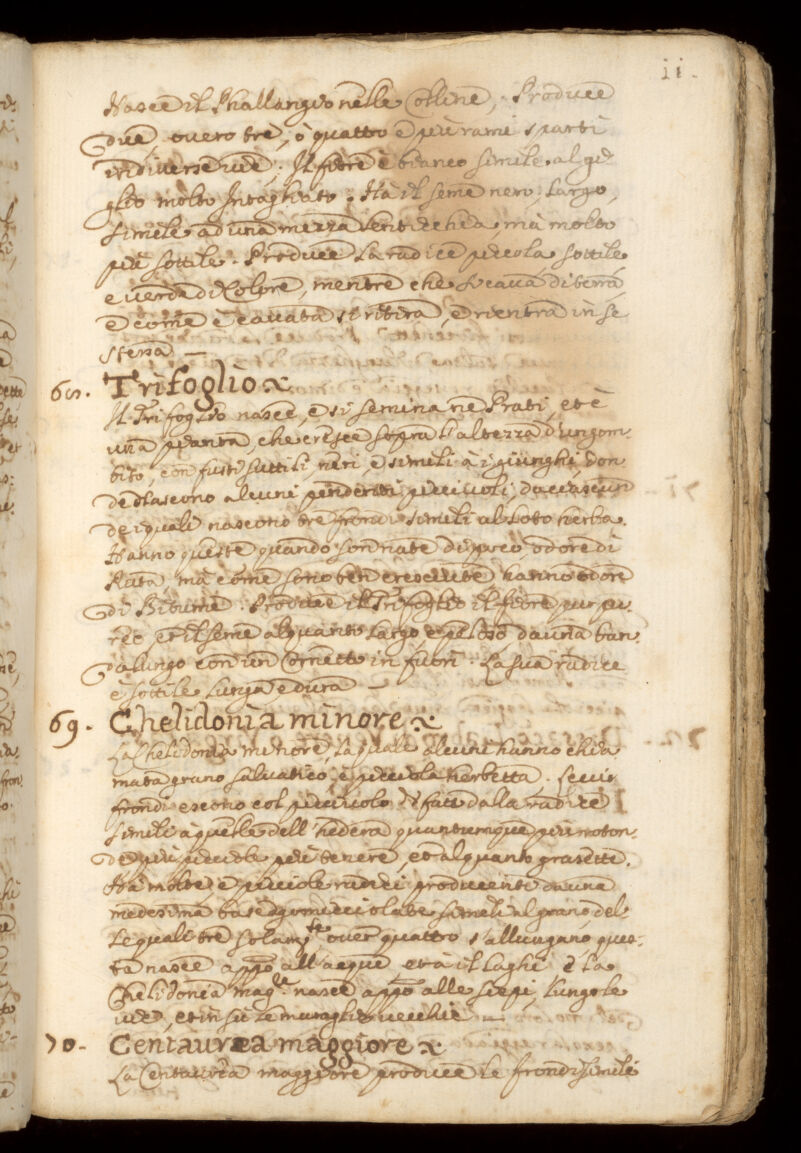 ii.
Nasce il Phallangio nelle Colline, Produce
due, overo tre, ò quattro e più rami sparti
in diverse vie. Il fiore è bianco simile al gi
glio molto Intagliato. Hà il seme nero, largo,
simile ad una mezza lenticchia, mà molto
più sottile. Produce la radice picola sottile
e verde di Colore, mentre che si cava di terra,
e come è cavata si ritira, e rientra in se
stessa
68. Trifoglio
Il Trifoglio nasce, e si semina ne Prati, et è
una pianta, che cresce sopra l'altezza d'un gom-
bito, con fusti suttili neri, e simili à i giunghi, don
de nascono alcuni pendenti picciuoli, da ciascun
de i quali nascono tre frondi simili al loto herba.
Hanno queste quando son nate di poco, odore di
Ruta mà come sono ben cresciute hanno odore
di Bitume. Produce il Trifoglio il fiore purpu-
reo, et il seme alquanto largo, e peloso da una ban-
da lungo con un Cornetto in fuori. La sua radice
è sottile lunga e dura
69. Chelidonia minore
La Chelidonia minore, la quale alcuni hanno chia
mata grano salvatico, è picciola herbetta.
frondi escono col picciuolo dalla radice
simili à quelle dell'hedera quantunque più roton-
de, più picciole più tenere, et alquanto grassette.
Hà molte e picciole radici producenti da una
medesima base simili al grano, del
le quali tre solam.te over quattro s'allungano, ques-
ta nasce app.o all'acque, et à i laghi, e la
Chelidonia mag.re nasce app.o alle siepi, lungo le
vie, et in su le muraglie vecchie
70. Centaurea maggiore
La Centaurea maggiore produce le frondi simili